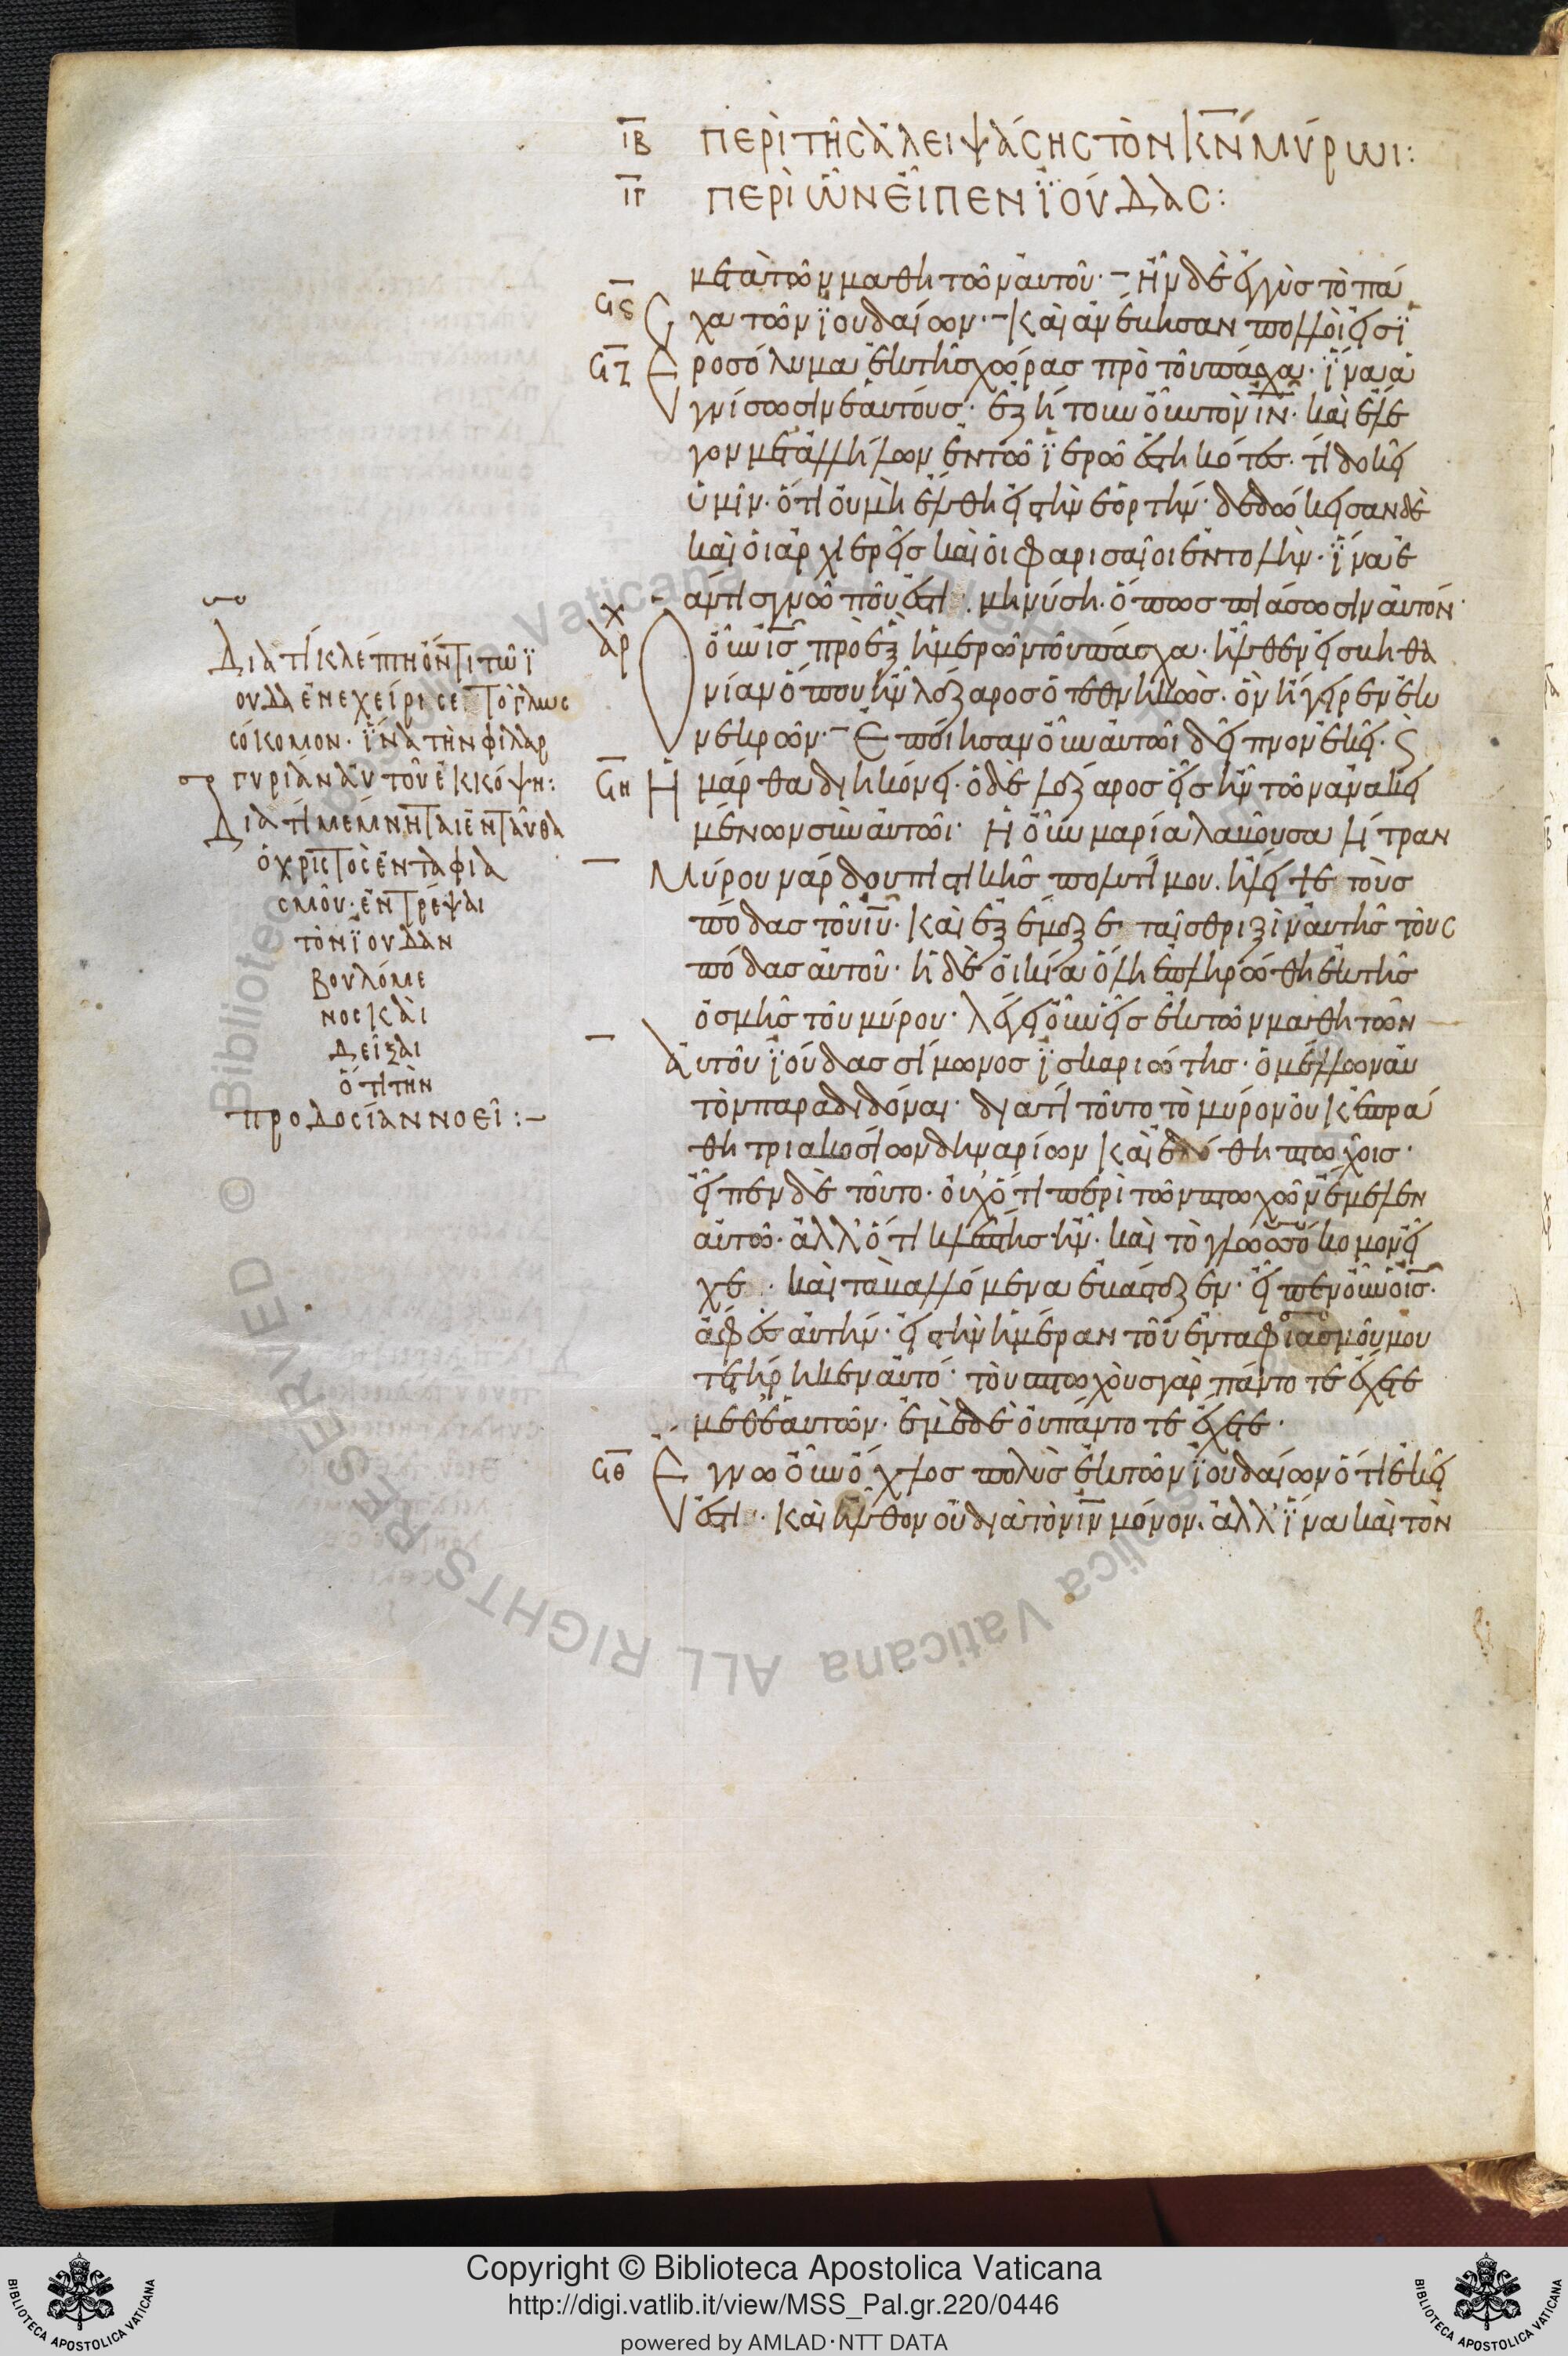 ΙΒ ΠΕΡῚ ΤΗ͂C ἈΛΕΙΨΆCΗC ΤῸΝ Κ̅Ν̅ ΜΎΡΩΙ:
ΙΓ ΠΕΡῚ ὯΝ ΕἾΠΕΝ ΪΟΎΔΑC:
μετὰ τῶν μαθητῶν αὐτοῦ· Ἦν δὲ ἐγγὺς τὸ πά
Ϛς χα τῶν ϊουδαίων· Καὶ ἀνέβησαν πολλοὶ εἰς ϊ
Ϛζ ροσόλυμα ἐκ τῆς χώρας πρὸ τοῦ πάσχα· ἵνα ἁ
γνίσωσιν ἑαυτούς· ἐζήτουν οὖν τὸν ι̅ν̅· καὶ ἔλε
γον μετ' ἀλλήλων ἐν τῶ ϊερῶ ἑστηκότες· τί δοκεῖ
ὑμῖν· ὅτι οὐ μὴ ἔλθη εἰς τὴν ἑορτήν· δεδώκεισαν δὲ
καὶ οἱ ἀρχιερεῖς καὶ οἱ φαρισαῖοι ἐντολὴν· ἵνα ἐ
άν τις γνῶ ποῦ ἐστι· μηνύση· ὅπως πιάσωσιν αὐτόν·
αρχ Ὁ οὖν ι̅ς̅ πρὸ ἓξ ἡμερῶν τοῦ πάσχα· ἦλθεν εἰς βηθα
νίαν ὅπου ἦν λάζαρος ὁ τεθνηκὼς· ὃν ἤγειρεν ἐκ
νεκρῶν· Ἐποίησαν οὖν αὐτῶι δεῖπνον ἐκεῖ·
Ϛη Ἡ μάρθα διηκόνει· ὁ δὲ λάζαρος εἷς ἦν τῶν ἀνακει
μένων σὺν αὐτῶι· Ἡ οὖν μαρία λαβοῦσα λίτραν
Μύρου νάρδου πιστικῆς πολυτίμου· ἤλειψε τοὺς
πόδας τοῦ ι̅υ̅· Καὶ ἐξέμαξε ταῖς θριξὶν αὐτῆς τοὺς
πόδας αὐτοῦ· ἡ δὲ οἰκία ὅλη ἐπληρώθη ἐκ τῆς
ὀσμῆς τοῦ μύρου· λέγει οὖν εἷς ἐκ τῶν μαθητῶν
Αὐτοῦ ϊούδας σίμωνος ϊσκαριώτης· ὁ μέλλων αὐ
τὸν παραδιδόναι· διατί τοῦτο τὸ μύρον οὐκ ἐπρά
θη τριακοσίων δηναρίων Καὶ ἐδόθη πτωχοῖς·
εἶπεν δὲ τοῦτο· οὐχ' ὅτι περὶ τῶν πτωχῶν ἔμελεν
αὐτῶ· ἀλλ' ὅτι κλέπτης ἦν· καὶ τὸ γλωσσόκομον εἶ
χε· καὶ τὰ βαλλόμενα ἐβάσταζεν· εἶπεν οὖν ὁ ι̅ς̅·
ἄφες αὐτήν· εἰς τὴν ἡμέραν τοῦ ἐνταφιασμοῦ μου
τετήρηκεν αὐτό· τοὺς πτωχοὺς γὰρ πάντοτε ἔχετε
μεθ' ἑαυτῶν· ἐμὲ δὲ οὐ πάντοτε ἔχετε·
Ϛθ Ἔγνω οὖν ὄχλος πολὺς ἐκ τῶν ϊουδαίων ὅτι ἐκεῖ
ἐστι· Καὶ ἦλθον οὐ διὰ τὸν ι̅ν̅ μόνον· ἀλλ' ἵνα καὶ τὸν
Διατί κλέπτη ὄντι τῶ ϊ
ούδα ἐνεχείρισε τὸ γλωσ
σόκομον· ἵνα τὴν φιλαρ
γυρίαν αὐτοῦ ἐκκόψη:
Διατί μέμνηται ἐνταῦθα
ὁ χριστὸς ἐνταφια
σμοῦ· ἐντρέψαι
τὸν ϊούδαν
βουλόμε
νος καὶ
δεῖξαι
ὅτι τὴν
προδοσίαν νοεῖ:—
Copyright © Biblioteca Apostolica Vaticana
http://digi.vatlib.it/view/MSS_Pal.gr.220/0446
powered by AMLAD·NTT DATA
BIBLIOTECA APOSTOLICA VATICANA
BIBLIOTECA APOSTOLICA VATICANA
© Biblioteca Apostolica Vaticana ALL RIGHTS RESERVED